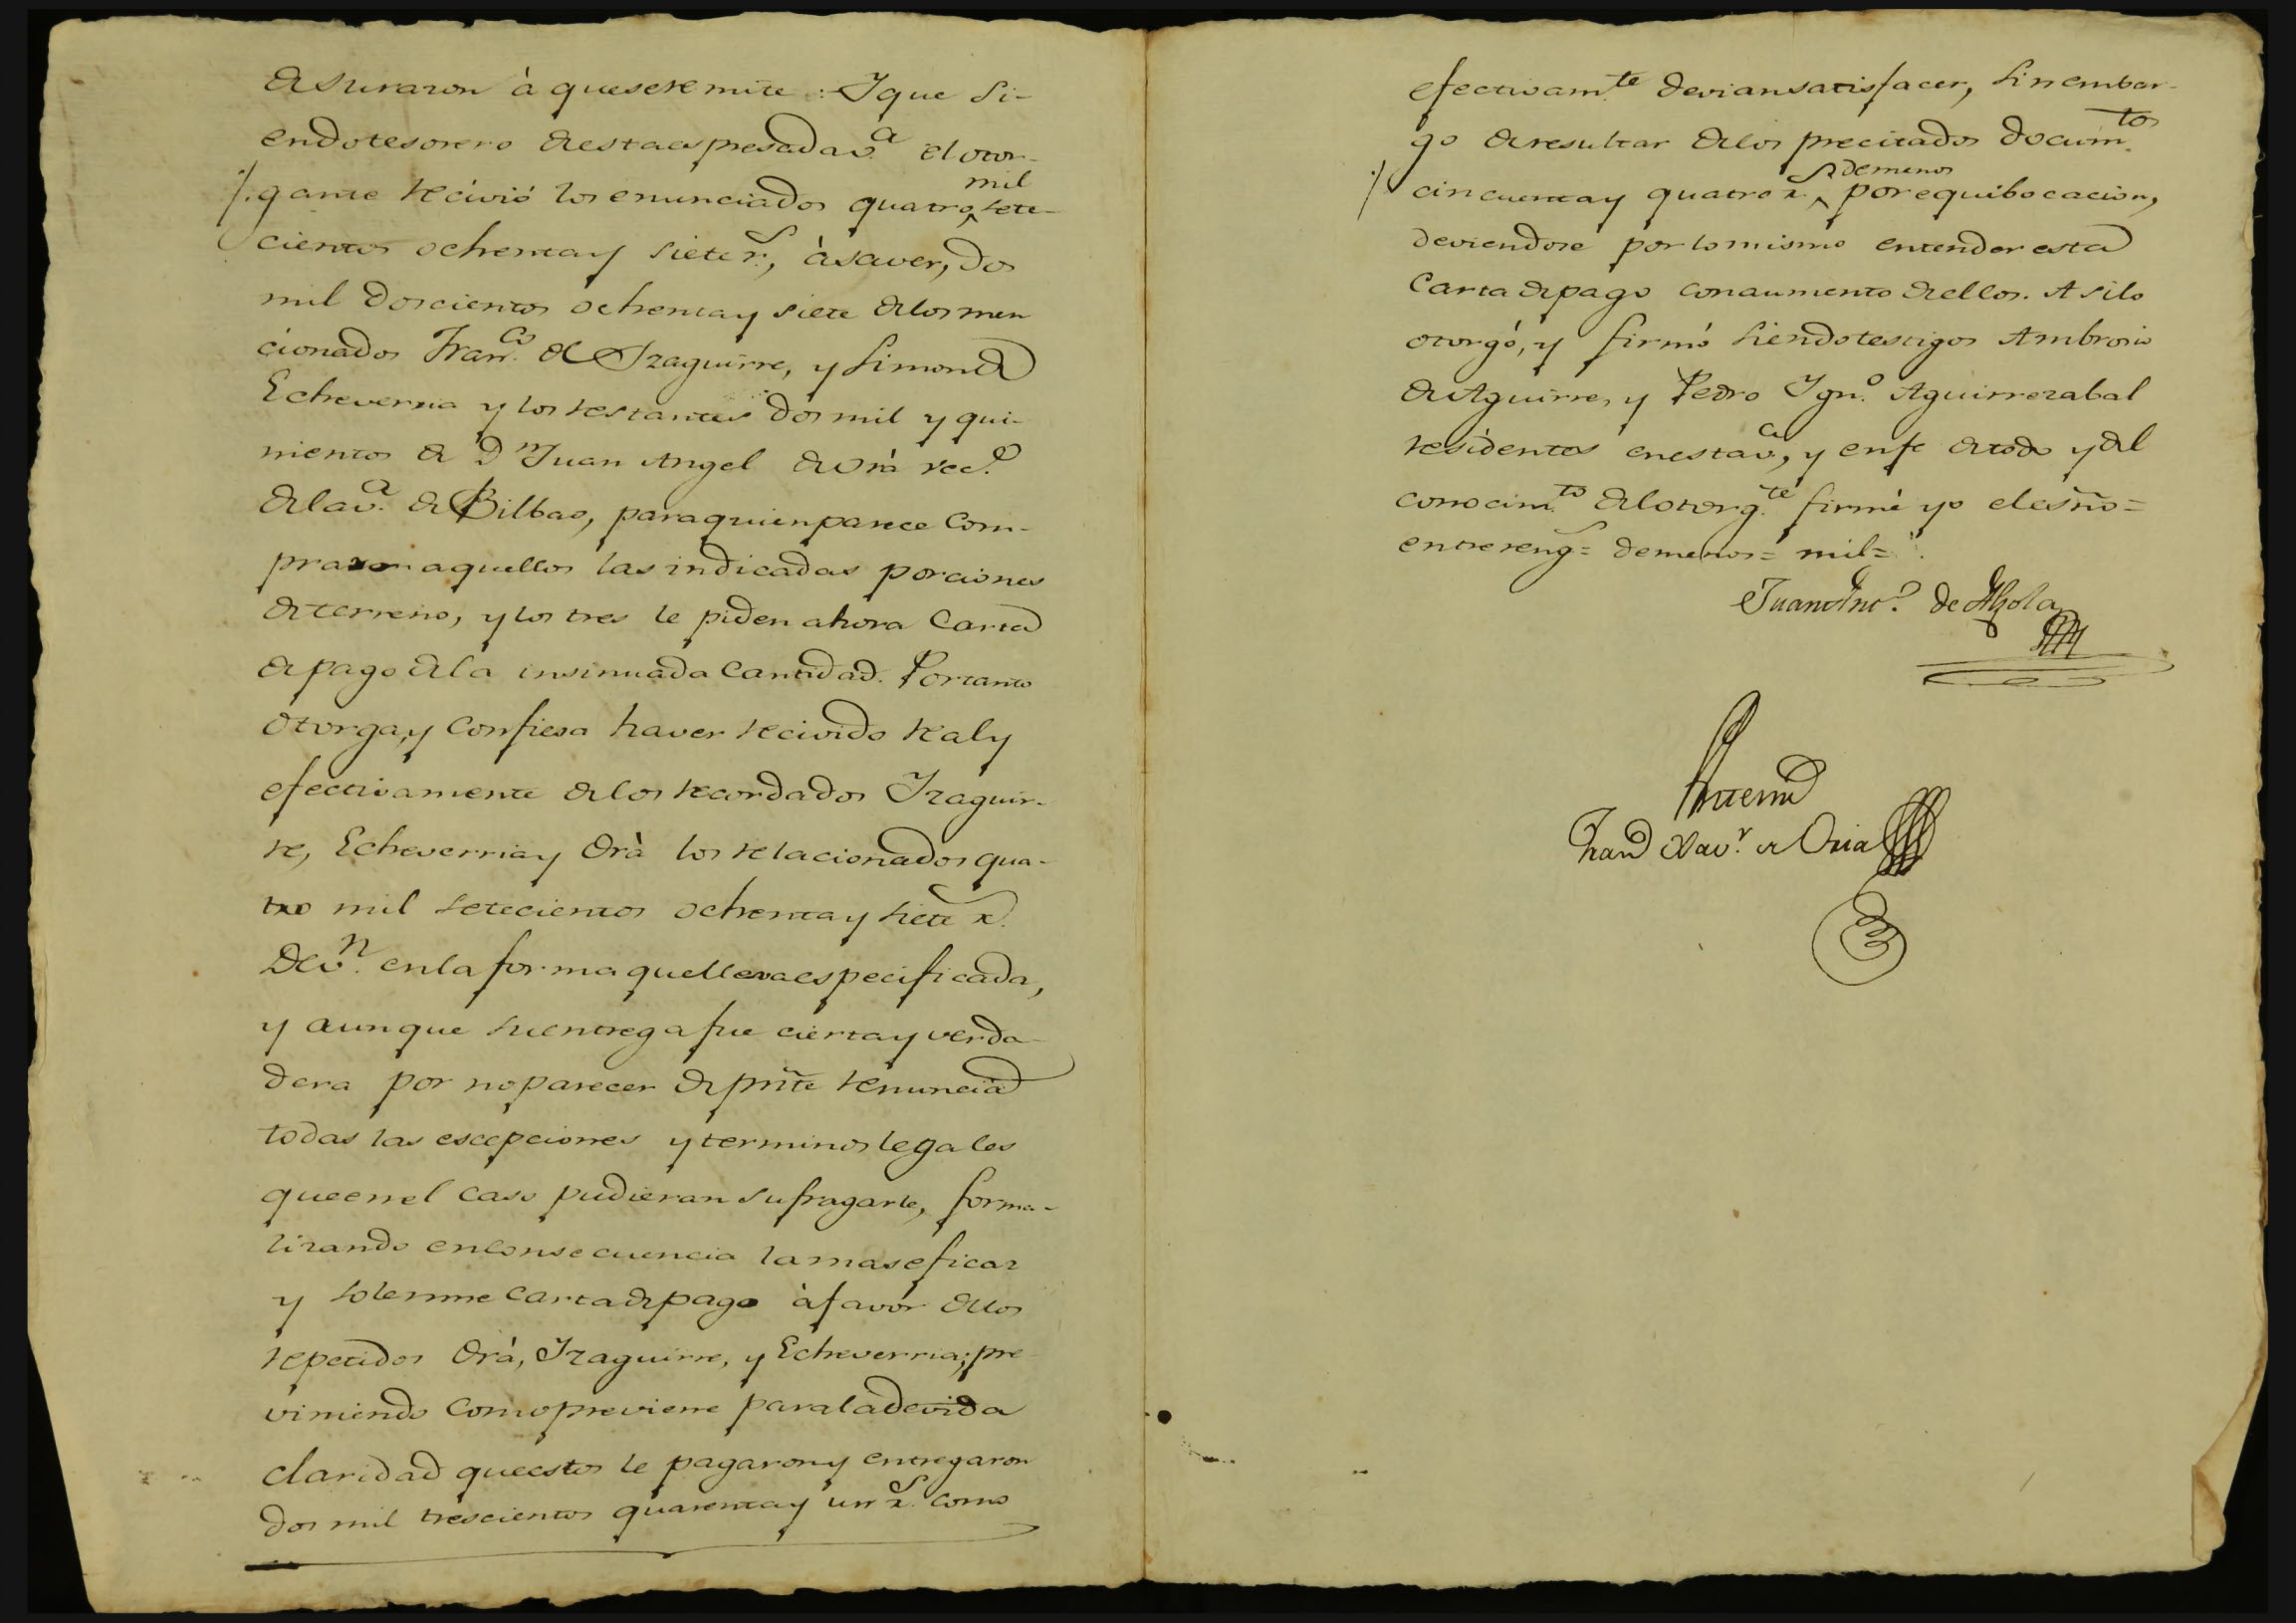 de su razon à que se remite: Y que si-
endo tesorero de esta espresada v.ª el otor-
/. gante recivió los enunciados quatro mil sete-
cientos ochenta y siete r.s, à saver, dos
mil doscientos ochenta y siete de los men
cionados Fran.co de Yzaguirre, y Simon de
Echeverria y los restantes dos mil y qui-
nientos de D.n Juan Angel de Orà vec.o
de la v.ª de Bilbao, para quien parece com-
praron aquellos las indicadas porciones
de terreno, y los tres le piden ahora Carta
de pago de la insinuada Cantidad. Portanto
Otorga, y Confiesa haver recivido real y
efectivamente de los recordados Yzaguir-
re, Echeverria y Orà los relacionados qua-
tro mil setecientos ochenta y siete r.s
De v.n en la forma que lleva especificada,
y aunque su entrega fue cierta y verda-
dera por no parecer de pñte renuncia
todas las escepciones y terminos legales
que en el caso pudieran sufragarle, forma-
lizando en consecuencia la mas eficaz
y solemne Carta de pago à favor de los
repetidos Orà, Yzaguirre, y Echeverria; pre-
viniendo como previene para la devida
claridad que estos le pagaron y entregaron
dos mil trescientos quarenta y un r.s como
efectivam.te devian satisfacer, sin embar-
go de resultar de los precitados docum.tos
/. cincuenta y quatro r.s de menos por equibocacion,
deviendose por lo mismo entender esta
Carta de pago con aumento de ellos. Asi lo
otorgó, y firmó siendo testigos Ambrosio
de Aguirre, y Pedro Ygn.o Aguirrezabal
residentes en esta v.ª, y en fe de todo y del
conocim.to del otorg.te firmé yo el esño=
entrereng.s= de menos= mil=
Juan Ant.o de Alzola
Antemi
Fran.co Xav.r de Oria